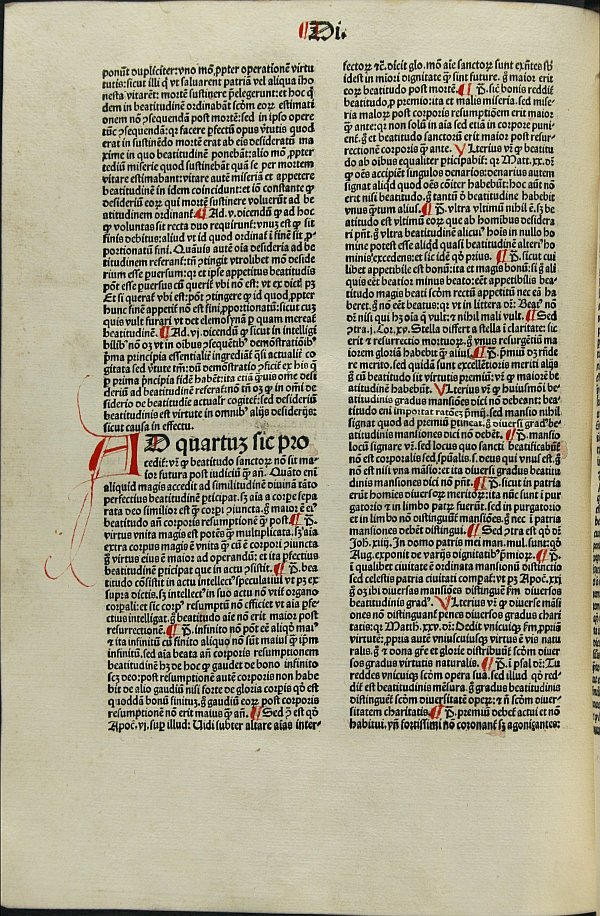 Di.
ponūt dupliciter: vno mō, ppter operationē virtu
tutis: sicut illi q̇ vt saluarent patriā vel aliqua iho
nesta vitarēt: mortē sustinere p̄elegerunt: et hoc q
dem in beatitudinē ordinabāt scd̄m eorꝫ estimati
onem nō ꝯsequendā post mortē: sed in ipso opere
tūc ꝯsequendā: qꝛ facere ꝑfectū opus v̄tutis quod
erat in sustinēdo mortē erat ab eis desideratū ma
xime in quo beatitudinē ponebāt: alio mō ꝓpter
tediū miserie quod sustinebāt quā se per mortem
vitare estimabant: vitare autē miseriā et appetere
beatitudinē in idem coincidunt: et iō constante ꝙ
desideriū eorꝫ qui mortē sustinere voluerūt ad be
atitudinem ordinant̄. ¶ Ad .v. dicendū ꝙ ad hoc
ꝙ voluntas sit recta duo requirunt̄: vnuꝫ est ꝙ sit
finis debitus: aliud vt id quod ordinat̄ ī finē sit ꝓ-
portionatū fini. Quāuis autē oīa desideria ad be
atitudinem referant̄: tn̄ ꝯtingit vtrolibet mō deside
rium esse ꝑuersum: qꝛ et ipse appetitus beatitudis
pōt esse ꝑuersus cū querit̄ vbi nō est: vt ex dict̄ pꝫ
Et si querat̄ vbi est: pōt ꝯtingere ꝙ id quod ꝓpter
hunc finē appetit̄ nō est fini ꝓportionatū: sicut cuꝫ
quis vult furari vt det elemosynā ꝑ quam mereat̄
beatitudinē. ¶ Ad .vj. dicendū ꝙ sicut in intelligi
bilib̄ nō oꝫ vt in oībus ꝯsequētib̄ demōstratiōib̄
p̄ma principia essentialiē ingrediāt̄ q̄si actualiē co
gitata sed v̄tute tm̄: dū demōstratio ꝯficit̄ ex his q̄
ꝑ prima p̄ncipia fidē habēt: ita etiā q̄uis om̄e desi
deriū ad beatitudinē referat̄: nō tn̄ oꝫ ꝙ in om̄i de
siderio de beatitudie actualr̄ cogitet̄: sed desideriū
beatitudinis est virtute in omnib̄ alijs desiderijs:
sicut causa in effectu.
AD quartuꝫ sic pro
cedit̄: vr̄ ꝙ beatitudo sanctorꝫ nō sit ma-
ior futura post iudiciū ꝙ an̄. Quāto enī
aliquid magis accedit ad similitudinē diuinā tāto
perfectius beatitudinē ꝑticipat. sꝫ aīa a corꝑe sepa
rata deo similior est ꝙ corꝑi ꝯiuncta. g̊ maior ē eiꝰ
beatitudo an̄ corporis resumptionē ꝙ post. ¶ P̄.
virtus vnita magis est potēs ꝙ multiplicata. sꝫ aīa
extra corpus magis ē vnita ꝙ cū ē corpori ꝯiuncta
g̊ virtus eius ē maior ad operandū: et ita ꝑfectius
beatitudinē ꝑticipat que in actu ꝯsistit. ¶ P̄. bea
titudo cōsistit in actu intellectꝰ speculatiui vt pꝫ ex
supra dictis. sꝫ intellectꝰ in suo actu nō vtit̄ organo
corꝑali: et sic corpꝰ resumptū nō efficiet vt aīa ꝑfe-
ctius intelligat. g̊ beatitudo aīe nō erit maior post
resurrectionē. ¶ P̄. infinito nō pōt eē aliqd̄ maiꝰ
et ita infinitū cū finito aliquo nō sūt maius ꝙ ip̄m
infinitū. sed aīa beata an̄ corporis resumptionem
beatitudinē hꝫ de hoc ꝙ gaudet de bono infinito
scꝫ deo: post resumptionē autē corporis non habe
bit de alio gaudiū nisi forte de gloria corpis qd̄ est
quoddā bonū finituꝫ. g̊ gaudiū eorꝫ post corporis
resumptionē non erit maius ꝙ an̄. ¶ Sed ꝯ est qd̄
Apoc̄. vj. suꝑ illud: Uidi subter altare aīas inter-
fectorꝫ tc̄. dicit glo. mō aīe sanctorꝫ sunt exn̄tes sb̄
idest in miori dignitate ꝙ sint future. g̊ maior erit
eorꝫ beatitudo post mortē. ¶ P̄. sic̄ bonis reddit̄
beatitudo ꝓ premio: ita et malis miseria. sed mise-
ria malorꝫ post corporis resumptiōem erit maior
ꝙ ante: qꝛ non solū in aīa sed etiā in corpore puni-
ent̄. g̊ et beatitudo sanctorū erit maior post resur-
rectionē corporis ꝙ ante. Ulterius vr̄ ꝙ beatitu
do ab oibus equaliter ꝑticipabit̄: qꝛ Matt. xx. dr̄
ꝙ oēs accipiēt singulos denarios: denarius autem
signat aliqd̄ quod oēs cōiter habebūt: hoc aūt nō
erit nisi beatitudo. g̊ tantū ō beatitudine habebit
vnus ꝙtum alius. ¶ P̄. vltra vltimū nihil ē. sꝫ be
atitudo est vltimū eorꝫ que ab hominibꝰ desidera
ri pn̄t. g̊ vltra beatitudinē alicuiꝰ hoīs in nullo ho
mine potest esse aliqd̄ quasi beatitudinē alteriꝰ ho
minis excedens: et sic idē qd̄ prius. ¶ P̄. sicut cui
libet appetibile est bonū: ita et magis bonū: si g̊ ali
quis eēt beatiorꝰ minus beatꝰ: eēt appetibilis bea-
titudo magis beati scd̄m rectū appetitū nec eā ha
beret. g̊ nō eēt beatus: qꝛ vt in littera dr̄: Beatꝰ nō
dr̄ nisi qui hꝫ oīa q̄ vult: et nihil mali vult. ¶ Sed
ꝯtra .j. Cor. xv. Stella differt a stella ī claritate: sic
erit et resurrectio mortuorꝫ. g̊ vnus resurgētiū ma
iorem gloriā habebit ꝙ alius. ¶ P̄. p̄miū dꝫ rn̄de
re merito. sed quidā sunt excellētioris meriti alijs
g̊ cū beatitudo sit virtutis premiū: vr̄ ꝙ maiorē be
atitudinē habebūt. Ulterius vr̄ ꝙ huiusmōi be-
atitudinis gradus mansiōes dici nō debeant: bea-
titudo enī importat ratōeꝫ p̄mij. sed mansio nihil
signat quod ad premiū ꝑtineat. g̊ diuersi gradꝰ be-
atitudinis mansiōes dici nō debēt. ¶ P̄. mansio
locū signare vr̄. sed locus quo sancti beatificabunt̄
nō est corporalis sed spūalis. s. deus qui vnus est. g̊
nō est nisi vna māsio: et ita diuersi gradus beatitu
dinis mansiones dici nō pn̄t. ¶ P̄. sicut in patria
erūt homies diuersorꝫ meritorꝫ: ita nūc sunt ī pur
gatorio et in limbo patrꝫ fuerūt. sed in purgatorio
et in limbo nō distinguūt̄ mansiōes. g̊ nec ī patria
mansiones debēt distingui. ¶ Sed ꝯtra est qd̄ dr̄
Joh. xiiij. In domo patris mei man. mul. sunt: qd̄
Aug. exponit de varijs dignitatib̄ p̄miorꝫ. ¶ P̄.
ī qualibet ciuitate ē ordinata mansionū distinctio
sed celestis patria ciuitati compat̄: vt pꝫ Apoc̄. xxj
g̊ oꝫ ibi diuersas mansiōes distinguē ẜm diuersos
beatitudinis gradꝰ. Ulterius vr̄ ꝙ diuerse māsi
ones nō distinguant̄ penes diuersos gradus chari
tatis: qꝛ Matth. xxv. dr̄: Dedit vnicuiqꝫ ẜm ꝓpriā
virtutē: ꝓpria autē vniuscuiusqꝫ virtus ē vis natu
ralis. g̊ et dona gr̄e et glorie distribuūt̄ scd̄m diuer
sos gradus virtutis naturalis. ¶ P̄. ī psal. dr̄: Tu
reddes vnicuiqꝫ scd̄m opera sua. sed illud qd̄ red-
dit̄ est beatitudinis mēsura. g̊ gradus beatitudinis
distinguēt̄ scd̄m diuersitatē operꝫ: et n̄ scd̄m diuer
sitatem charitatis. ¶ P̄. premiū debet̄ actui et nō
habitui. vn̄ fortissimi nō coronant̄ sꝫ agonizantes: